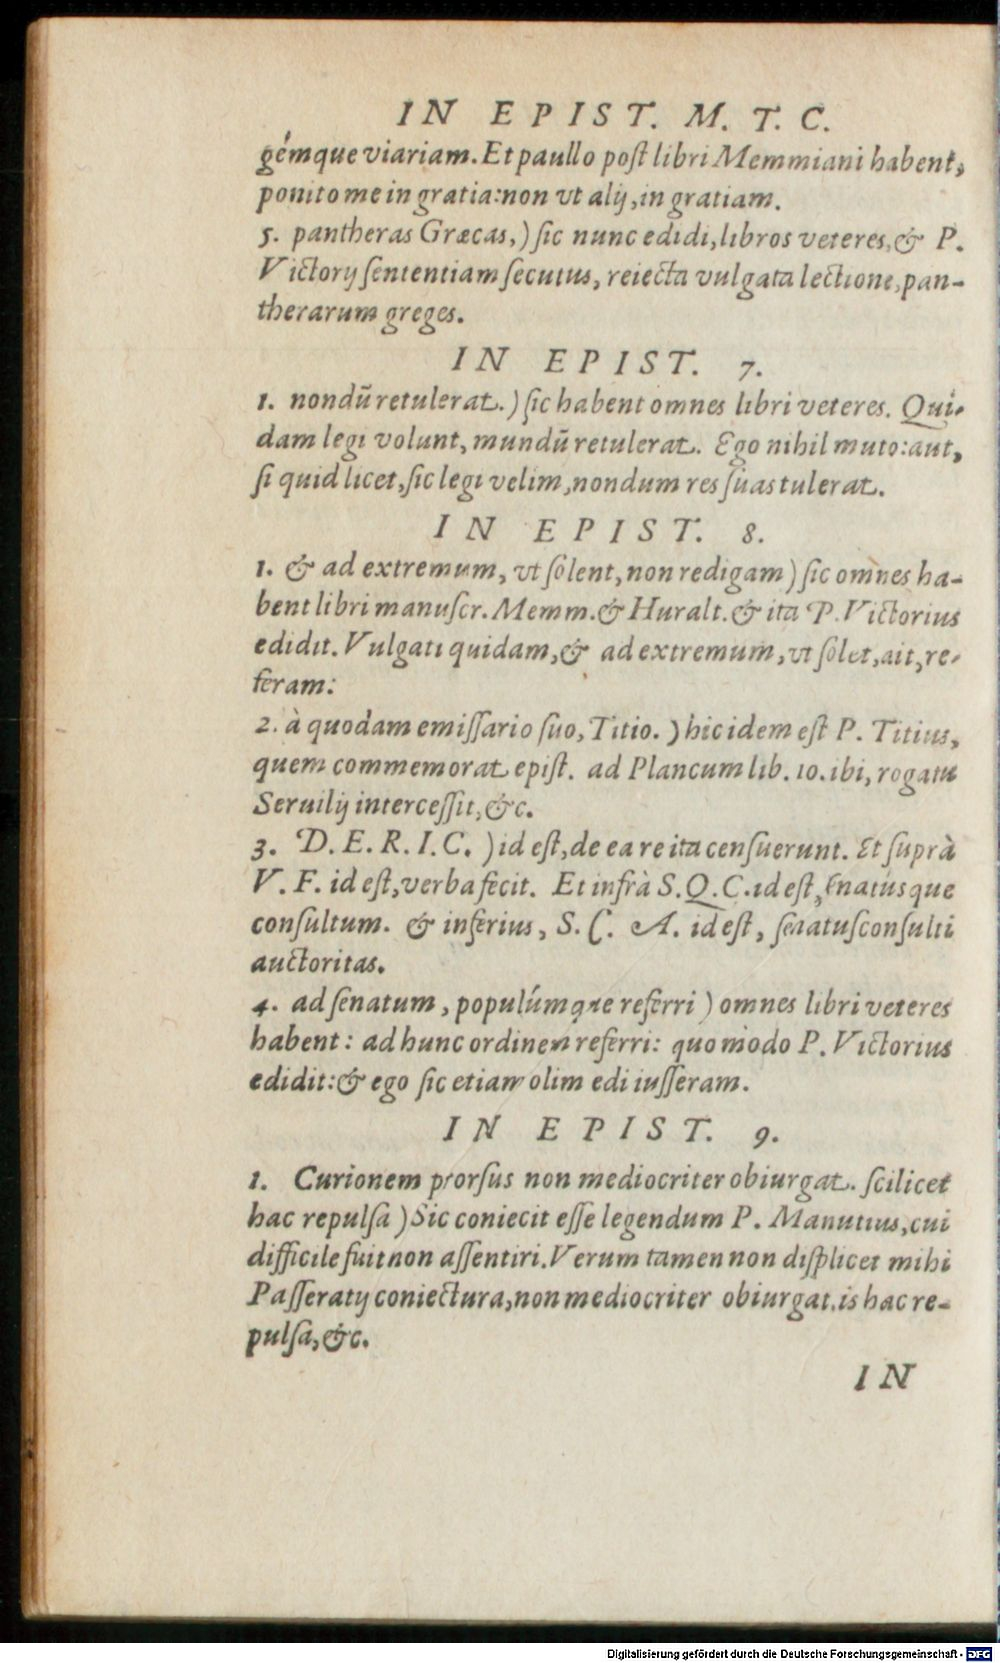 IN EPIST. M. T. C.
gémque viariam. Et paullo poſt libri Memmiani habent,
ponito me in gratia: non vt alij, in gratiam.
5. pantheras Græcas,) ſic nunc edidi, libros veteres, & P.
Victorij ſententiam ſecutus, reiecta vulgata lectione, pan-
therarum greges.
IN EPIST. 7.
1. nondū retulerat.) ſic habent omnes libri veteres. Qui-
dam legi volunt, mundū retulerat. Ego nihil muto: aut,
ſi quid licet, ſic legi velim, nondum res ſuas tulerat.
IN EPIST. 8.
1. & ad extremum, vt ſolent, non redigam) ſic omnes ha-
bent libri manuſcr. Memm. & Huralt. & ita P. Victorius
edidit. Vulgati quidam, & ad extremum, vt ſolet, ait, re-
feram:
2. à quodam emiſſario ſuo, Titio.) hic idem eſt P. Titius,
quem commemorat epiſt. ad Plancum lib. 10. ibi, rogatu
Seruilij interceſſit, &c.
3. D. E. R. I. C.) id eſt, de ea re ita cenſuerunt. Et ſuprà
V. F. id eſt, verba fecit. Et infrà S. Q. C. id eſt, ſenatúsque
conſultum. & inferius, S. C. A. id eſt, ſenatuſconſulti
auctoritas.
4. ad ſenatum, populúmque referri) omnes libri veteres
habent: ad hunc ordinem referri: quo modo P. Victorius
edidit: & ego ſic etiam olim edi iuſſeram.
IN EPIST. 9.
1. Curionem prorſus non mediocriter obiurgat. ſcilicet
hac repulſa) Sic coniecit eſſe legendum P. Manutius, cui
difficile fuit non aſſentiri. Verum tamen non diſplicet mihi
Paſſeratij coniectura, non mediocriter obiurgat. is hac re-
pulſa, &c.
IN
Digitalisierung gefördert durch die Deutsche Forschungsgemeinschaft - DFG